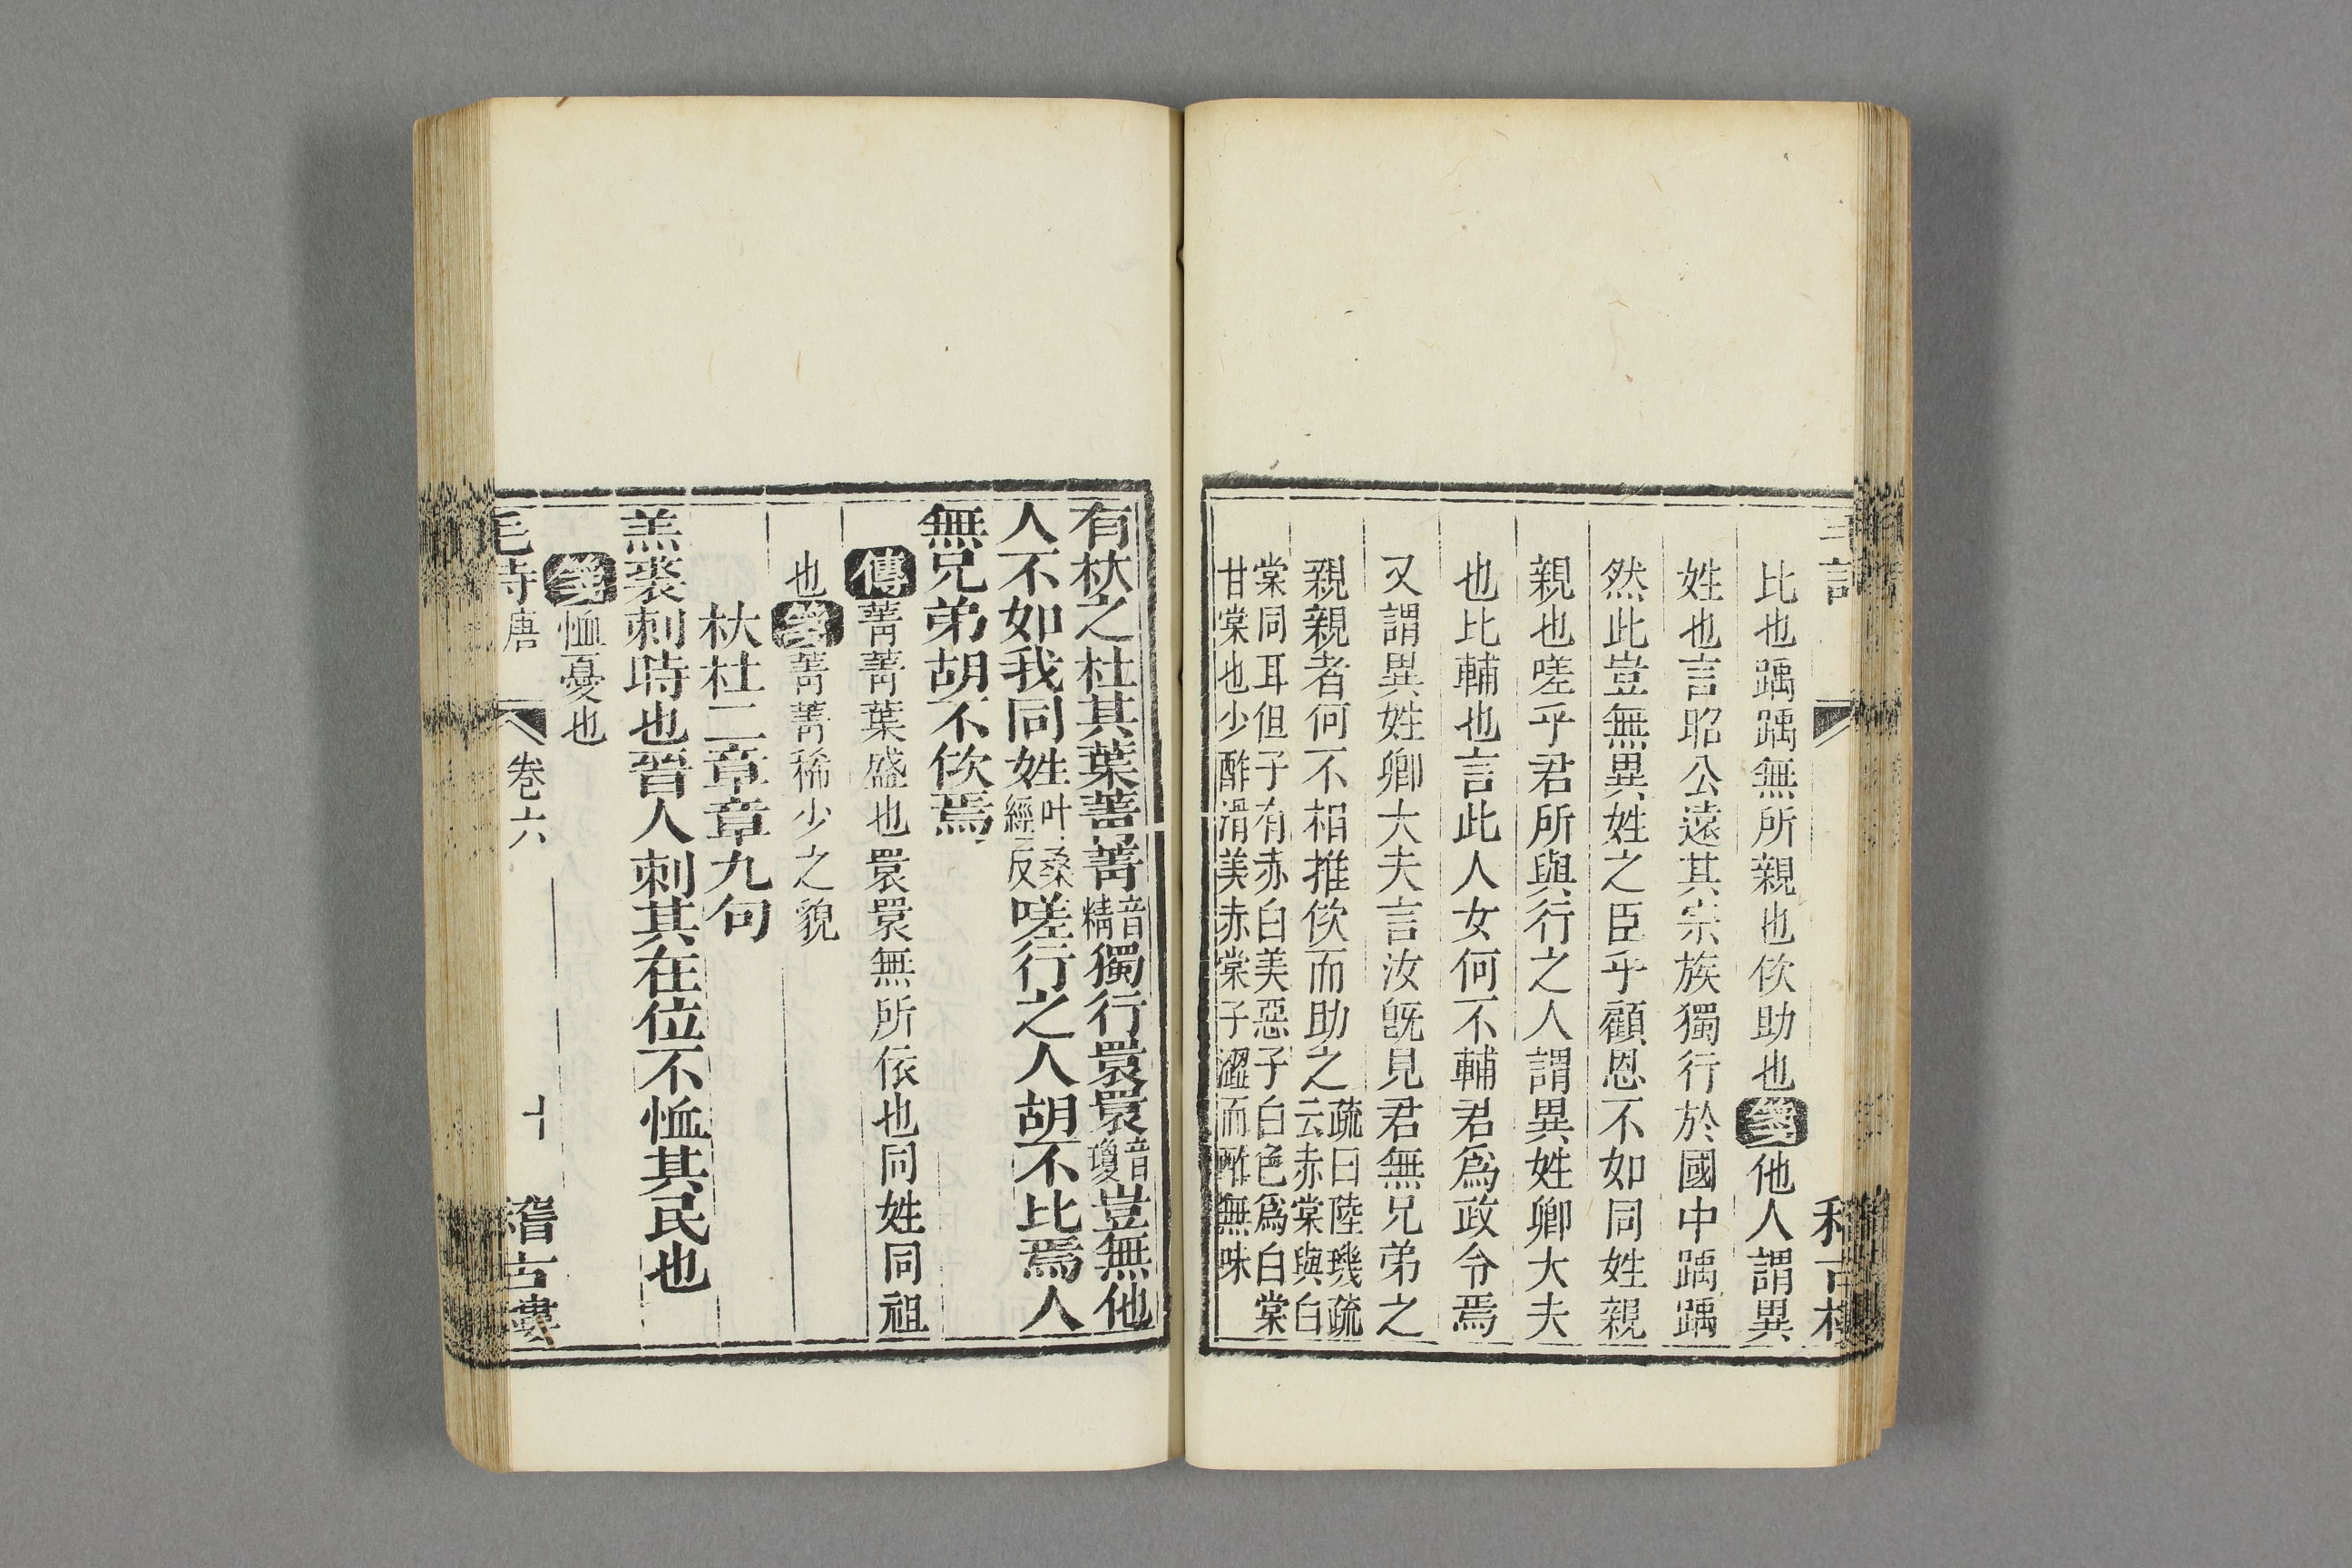 比也踽踽無所親也佽助也箋他人謂異
姓也言昭公遠其宗族獨行於國中踽踽
然此豈無異姓之臣乎顧恩不如同姓親
親也嗟乎君所與行之人謂異姓卿大夫
也比輔也言此人女何不輔君爲政令焉
又謂異姓卿大夫言汝旣見君無兄弟之
親親者何不相推佽而助之疏曰陸璣疏
云赤棠與白
棠同耳但子有赤白美惡子白色爲白棠
甘棠也少酢滑美赤棠子澀而酢無味
有杕之杜其葉菁菁音精獨行睘睘音瓊豈無他
人不如我同姓叶桑經反嗟行之人胡不比焉人
無兄弟胡不佽焉
傳菁菁葉盛也睘睘無所依也同姓同祖
也箋菁菁稀少之貌
杕杜二章章九句
羔裘刺時也晉人刺其在位不恤其民也
箋恤憂也
毛詩唐 卷六 十 稽古樓